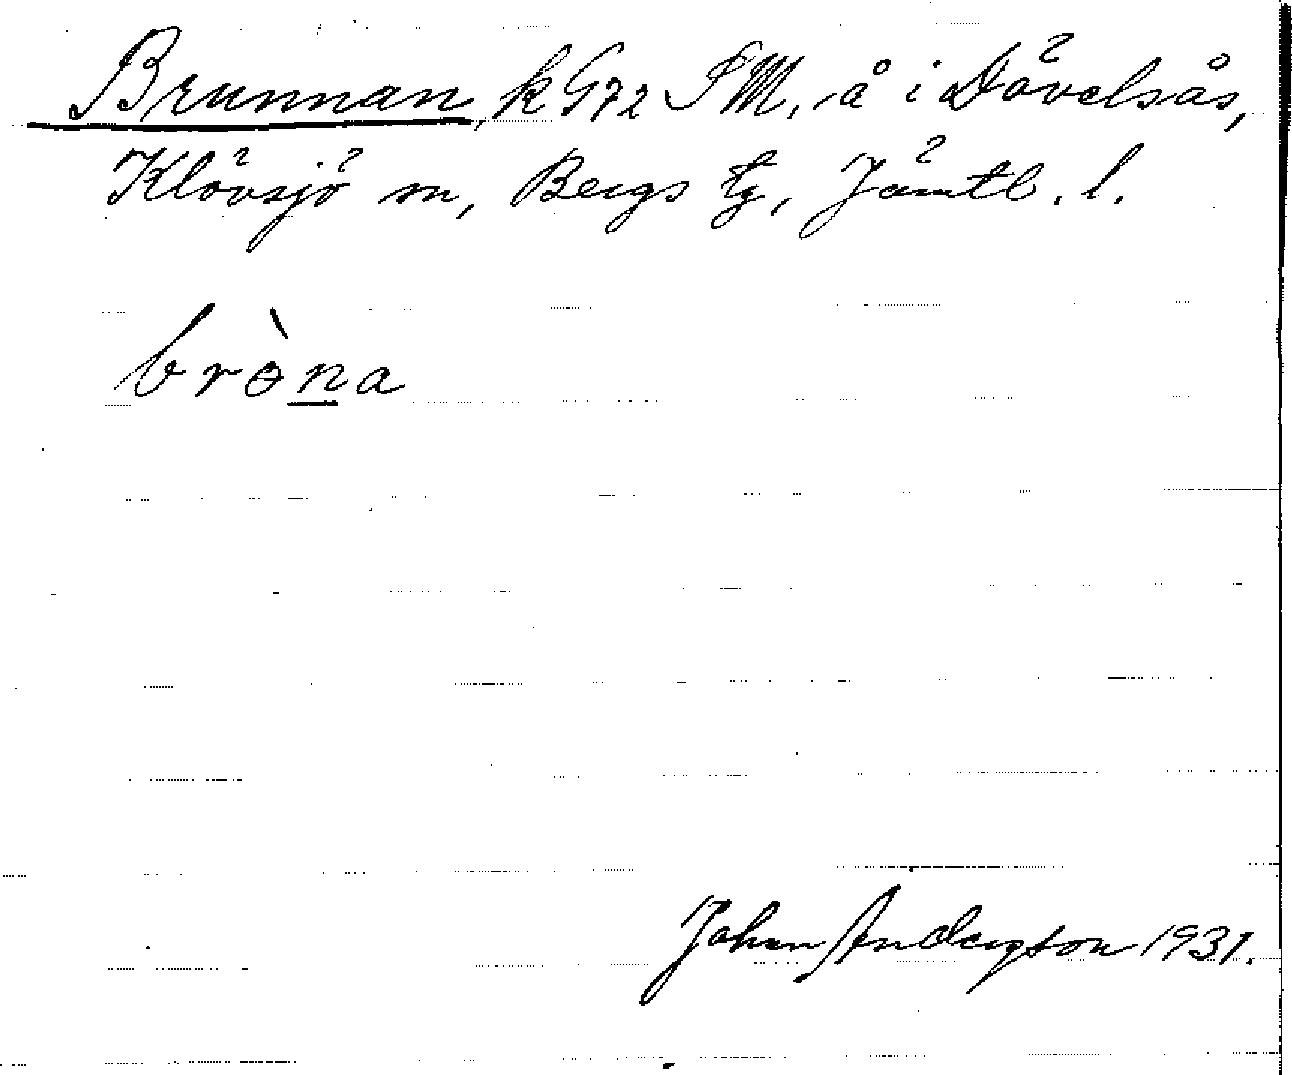 Brunnan, k G72 SM, å i Dövelsås,
Klövsjö sn, Bergs tg, Jämtl. l.
brɵ̀na
Johan Anderson 1931.